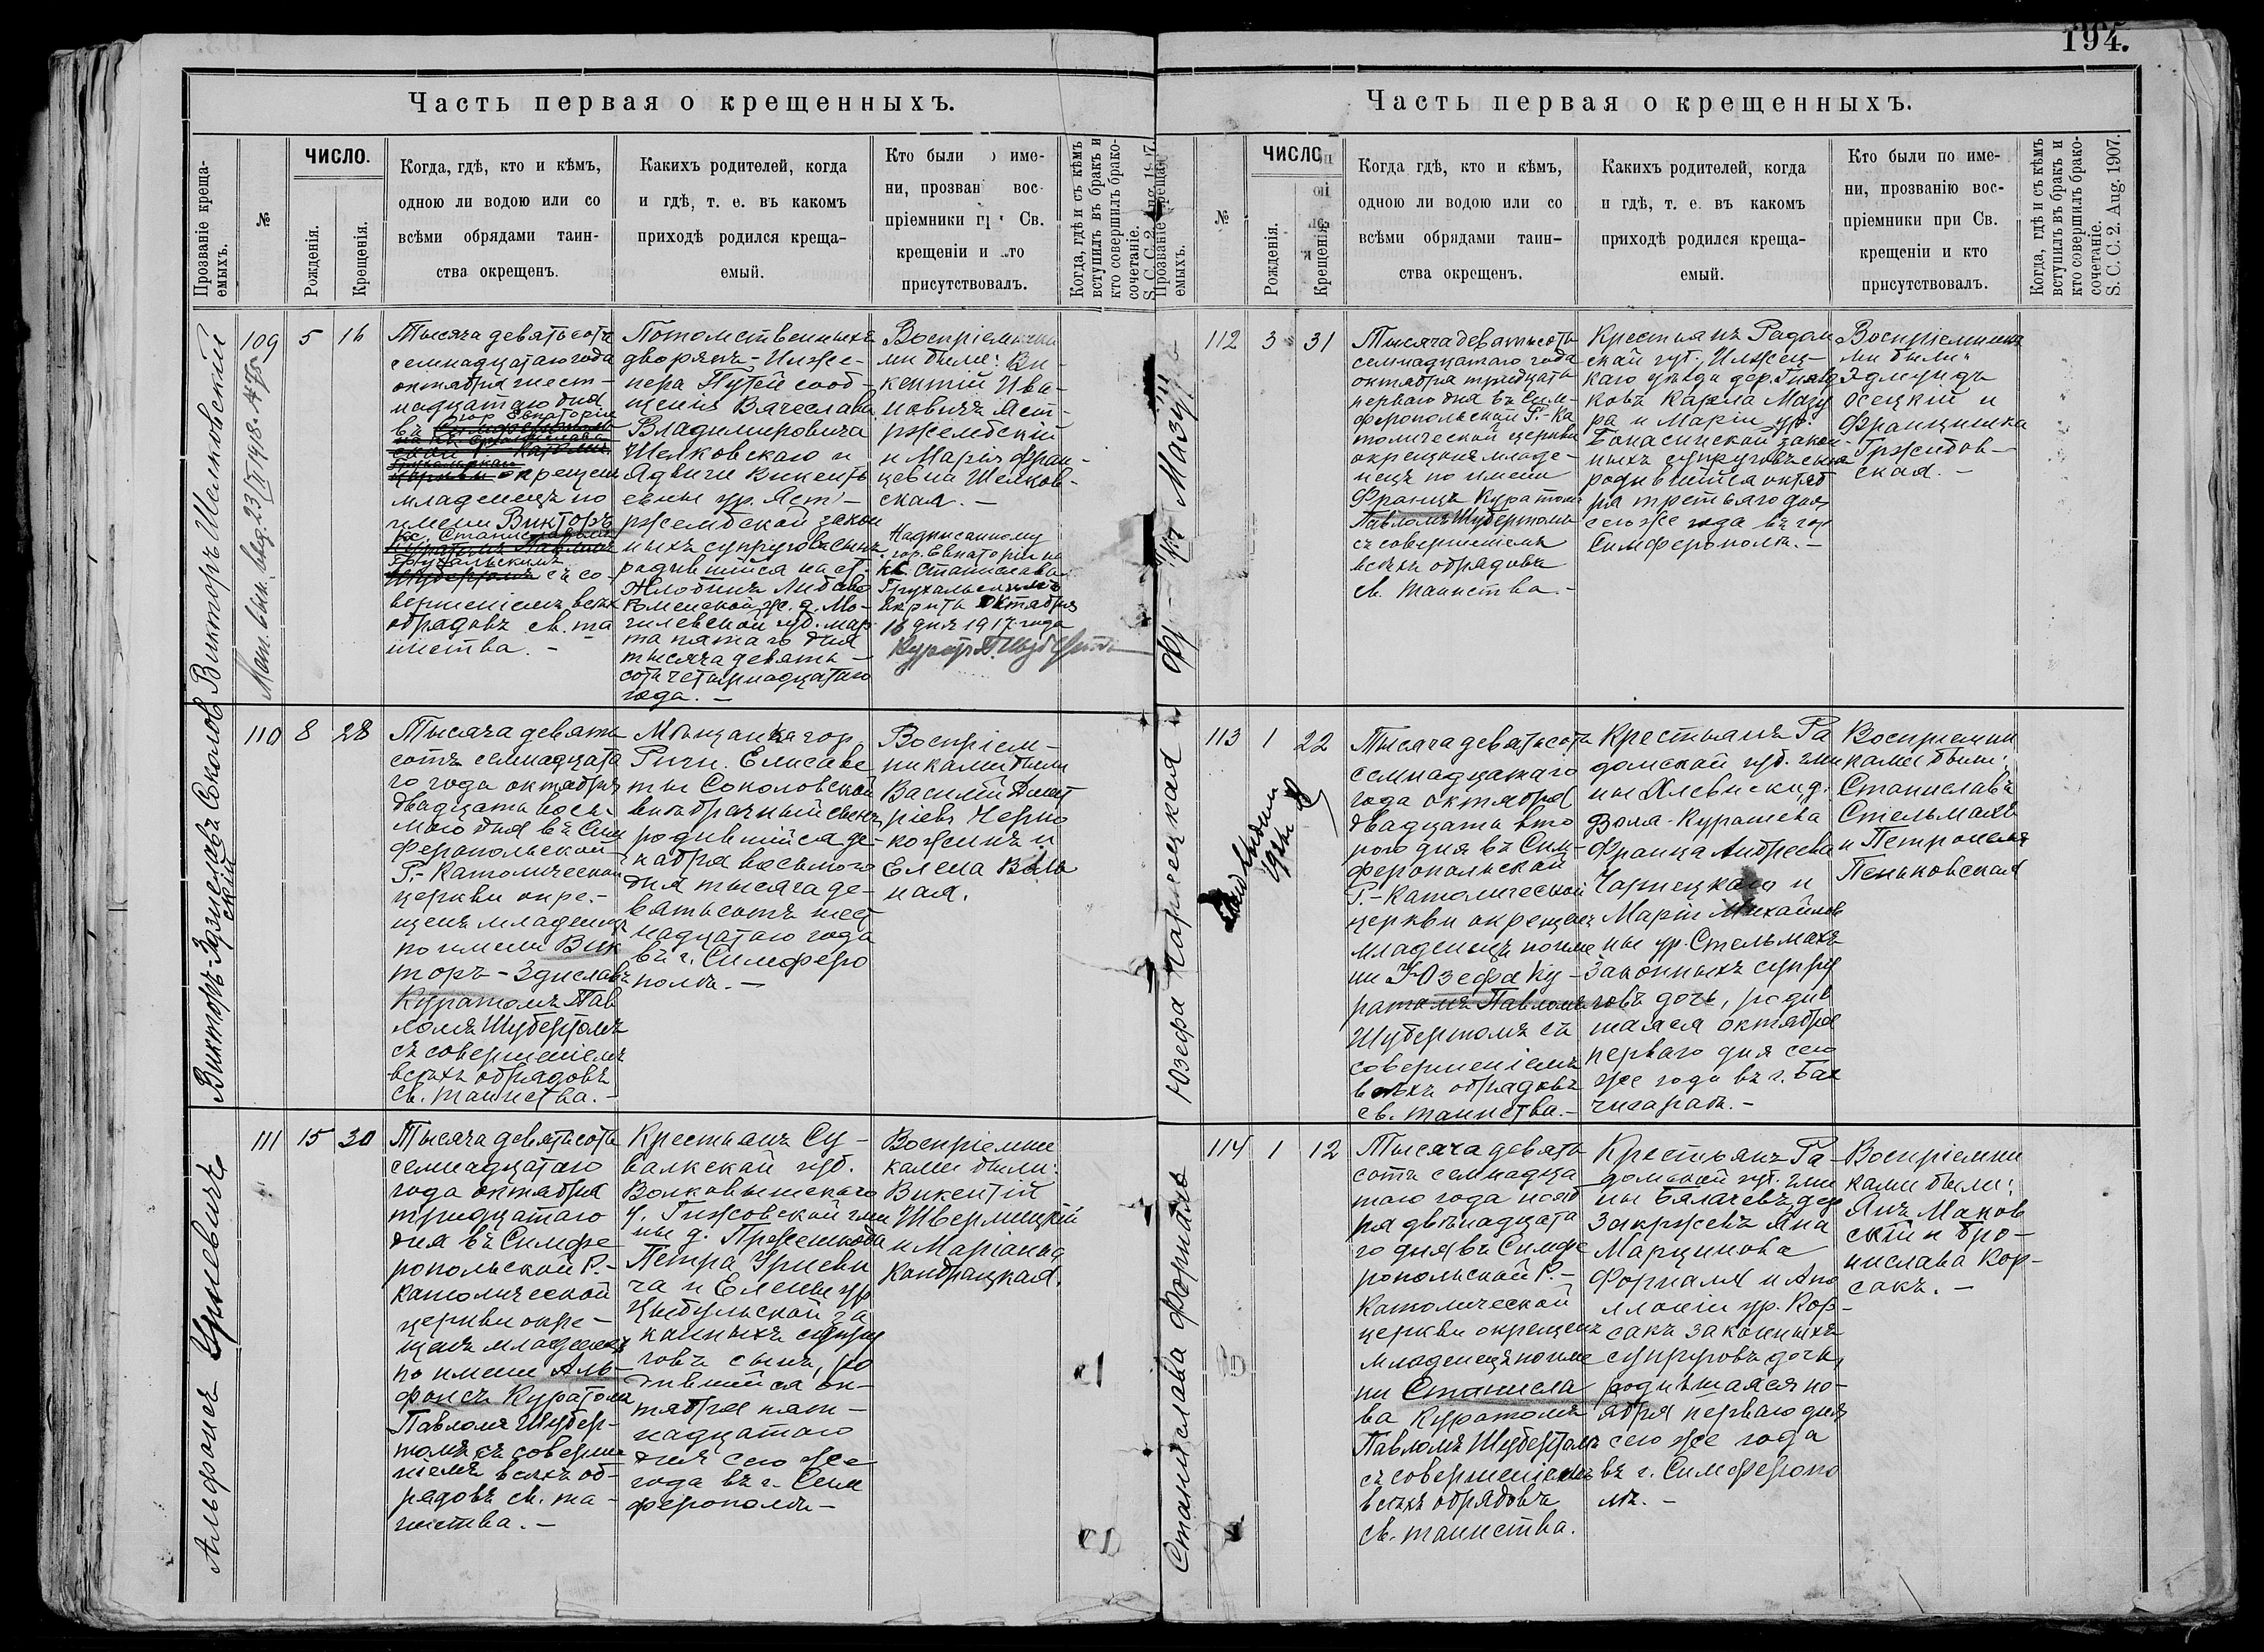 194.
Часть первая о крещенныхъ.
Прозваніе креща-
емыхъ.
№
ЧИСЛО.
Рожденія.
Крещенія.
Когда, гдѣ, кто и кѣмъ,
одною ли водою или со
всѣми обрядами таин-
ства окрещенъ.
Какихъ родителей, когда
и гдѣ, т. е. въ какомъ
приходѣ родился креща-
емый.
Кто были име-
ни, прозван вос-
пріемники Св.
крещеніи и
присутствовалъ.
Когда, гдѣ и съ кѣмъ
вступилъ въ бракъ и
кто совершилъ брако-
сочетаніе.
Викторъ Шелковскій
109
5
16
Тысяча девятьсотъ
семнадцатаго года
октября шест-
надцатаго дня
въ
окрещенъ
младенецъ по
имени Викторъ
съ со-
вершеніемъ всѣхъ
обрядовъ св. та
инства. -
Потомственныхъ
дворянъ - Инже-
нера Путей сооб-
щенія Вячеслава
Владимировича
Шелковскаго и
Ядвиги Викенть
евны ур. Яст-
ржембской закон
ныхъ супруговъ сынъ
родившійся на ст.
Жлобинъ Либаво
Роменской ж. д. Мо-
гилевской губ. мар
та пятаго дня
тысяча девять-
сотъ четырнадцатаго
года. -
Воспріемника
ми были: Ви-
кентій Ива-
новичъ Яст-
ржембскій
и Марія Фран-
цевна Шелков-
ская. -
Надписанному
гор. Евпаторіи
кс. Станислава
вѣрить октября
16 дня 1917 года
Викторъ-Здиславъ Соколов
скій
110
8
28
Тысяча девять
сотъ семнадцата
го года октября
двадцать вось-
мого дня въ Сим
феропольской
Р.-Католической
церкви окре-
щенъ младенецъ
по имени Вик
торъ - Здиславъ
Куратомъ Пав
ломъ Шубертомъ
съ совершеніемъ
всѣхъ обрядовъ
св. таинства. -
Мѣщанки гор.
Риги. Елисаве
ты Соколовской
внѣбрачный сынъ
родившійся де-
кабря восьмого
дня тысяча де-
вятьсотъ шест
надцатаго года
въ г. Симферо
полѣ. -
Воспріем-
никами были
Василій Дмит
ріевъ Черно
кожинъ и
Елена
111
15
30
Альфонсъ Урневичъ
Тысяча девятьсотъ
семнадцатаго
года октября
тридцатаго
дня въ Симфе
ропольской Р.-
Католической
церкви окре-
щенъ младенецъ
по имени Аль-
фонсъ Куратомъ
Павломъ Шубер-
томъ съ соверше
ніемъ всѣхъ об-
рядовъ св. та-
инства. -
Крестьянъ Су-
валкской губ.
Волковышскаго
у. Гижовской гми
ны д.
Петра Урневи
ча и Елены ур
Цыбульской за
конныхъ супру
говъ сынъ, ро
дившійся ок-
тября пят-
надцатаго
дня сего же
года въ г. Сим
ферополѣ -
Воспріемни
ками были:
Викентій
Швермицкій
и Маріанна
Кондрацкая.
Часть первая о крещенныхъ.
Прозваніе креща-
емыхъ.
№
ЧИСЛО
Рожденія.
Крещенія
Когда гдѣ, кто и кѣмъ,
одною ли водою или со
всѣми обрядами таин-
ства окрещенъ.
Какихъ родителей, когда
и гдѣ, т. е. въ какомъ
приходѣ родился креща-
емый.
Кто были по име-
ни, прозванію вос-
пріемники при Св.
крещеніи и кто
присутствовалъ.
Когда, гдѣ и съ кѣмъ
вступилъ въ бракъ и
кто совершилъ брако-
сочетаніе.
S. C. C. 2. Aug. 1907.
Мазур
112
3
31
Тысяча девятьсотъ
семнадцатаго года
октября тридцать
перваго дня въ Сим-
феропольской Р.-Ка
толической церкви
окрещенъ младе-
нецъ по имени
Францъ Куратомъ
Павломъ Шубертомъ
съ совершеніемъ
всѣхъ обрядовъ
св. таинства. -
Крестьянъ Радом
ской губ. Илжец-
каго уѣзда дер.
Карла Мазу
ра и Маріи ур.
закон-
ныхъ супруговъ сынъ
родившійся октяб
ря третьяго дня
сего же года въ гор
Симферополѣ. -
Воспріемника
ми были
Эдмундъ
Осецкій и
Францишка
Гржибов-
ская. -
Юзефа Чарнецкая
113
1
22
Тысяча девятьсотъ
семнадцатаго
года октября
двадцать вто
рого дня въ Сим-
феропольской
Р.-Католической
церкви окрещенъ
младенецъ по име
ни Юзефа Ку-
ратомъ Павломъ
Шубертомъ съ
совершеніемъ
всѣхъ обрядовъ
св. таинства. -
Крестьянъ Ра
домской губ. гми
ны Хлевиски, д.
Воля-Курашева
Франца Андреева
Чарнецкаго и
Маріи Михайлов
ны ур. Стельмахъ
законныхъ супру
говъ дочь, родив
шаяся октября
перваго дня сего
же года въ г. Бах
чисараѣ. -
Воспріемни
ками были:
Станиславъ
Стельмахъ
и Петронеля
Пеньковская
Станислава Форналь
114
1
12
Тысяча девять
сотъ семнадца
таго года нояб
ря двѣнадцата
го дня въ Симфе
ропольской Р.-
Католической
церкви окрещенъ
младенецъ по име
ни Станисла
ва Куратомъ
Павломъ Шубертомъ
съ совершеніемъ
всѣхъ обрядовъ
св. таинства.
Крестьянъ Ра-
домской губ. гми
ны Бялачевъ, дер
Закржевъ Яна
Марцинова
Форналя и Апо
ллоніи ур. Кор-
сакъ законныхъ
супруговъ дочь,
родившаяся но-
ября перваго дня
сего же года
въ г. Симферопо
лѣ. -
Воспріемни
ками были:
Янъ Маков
скій и Бро-
нислава Кор-
сакъ. -